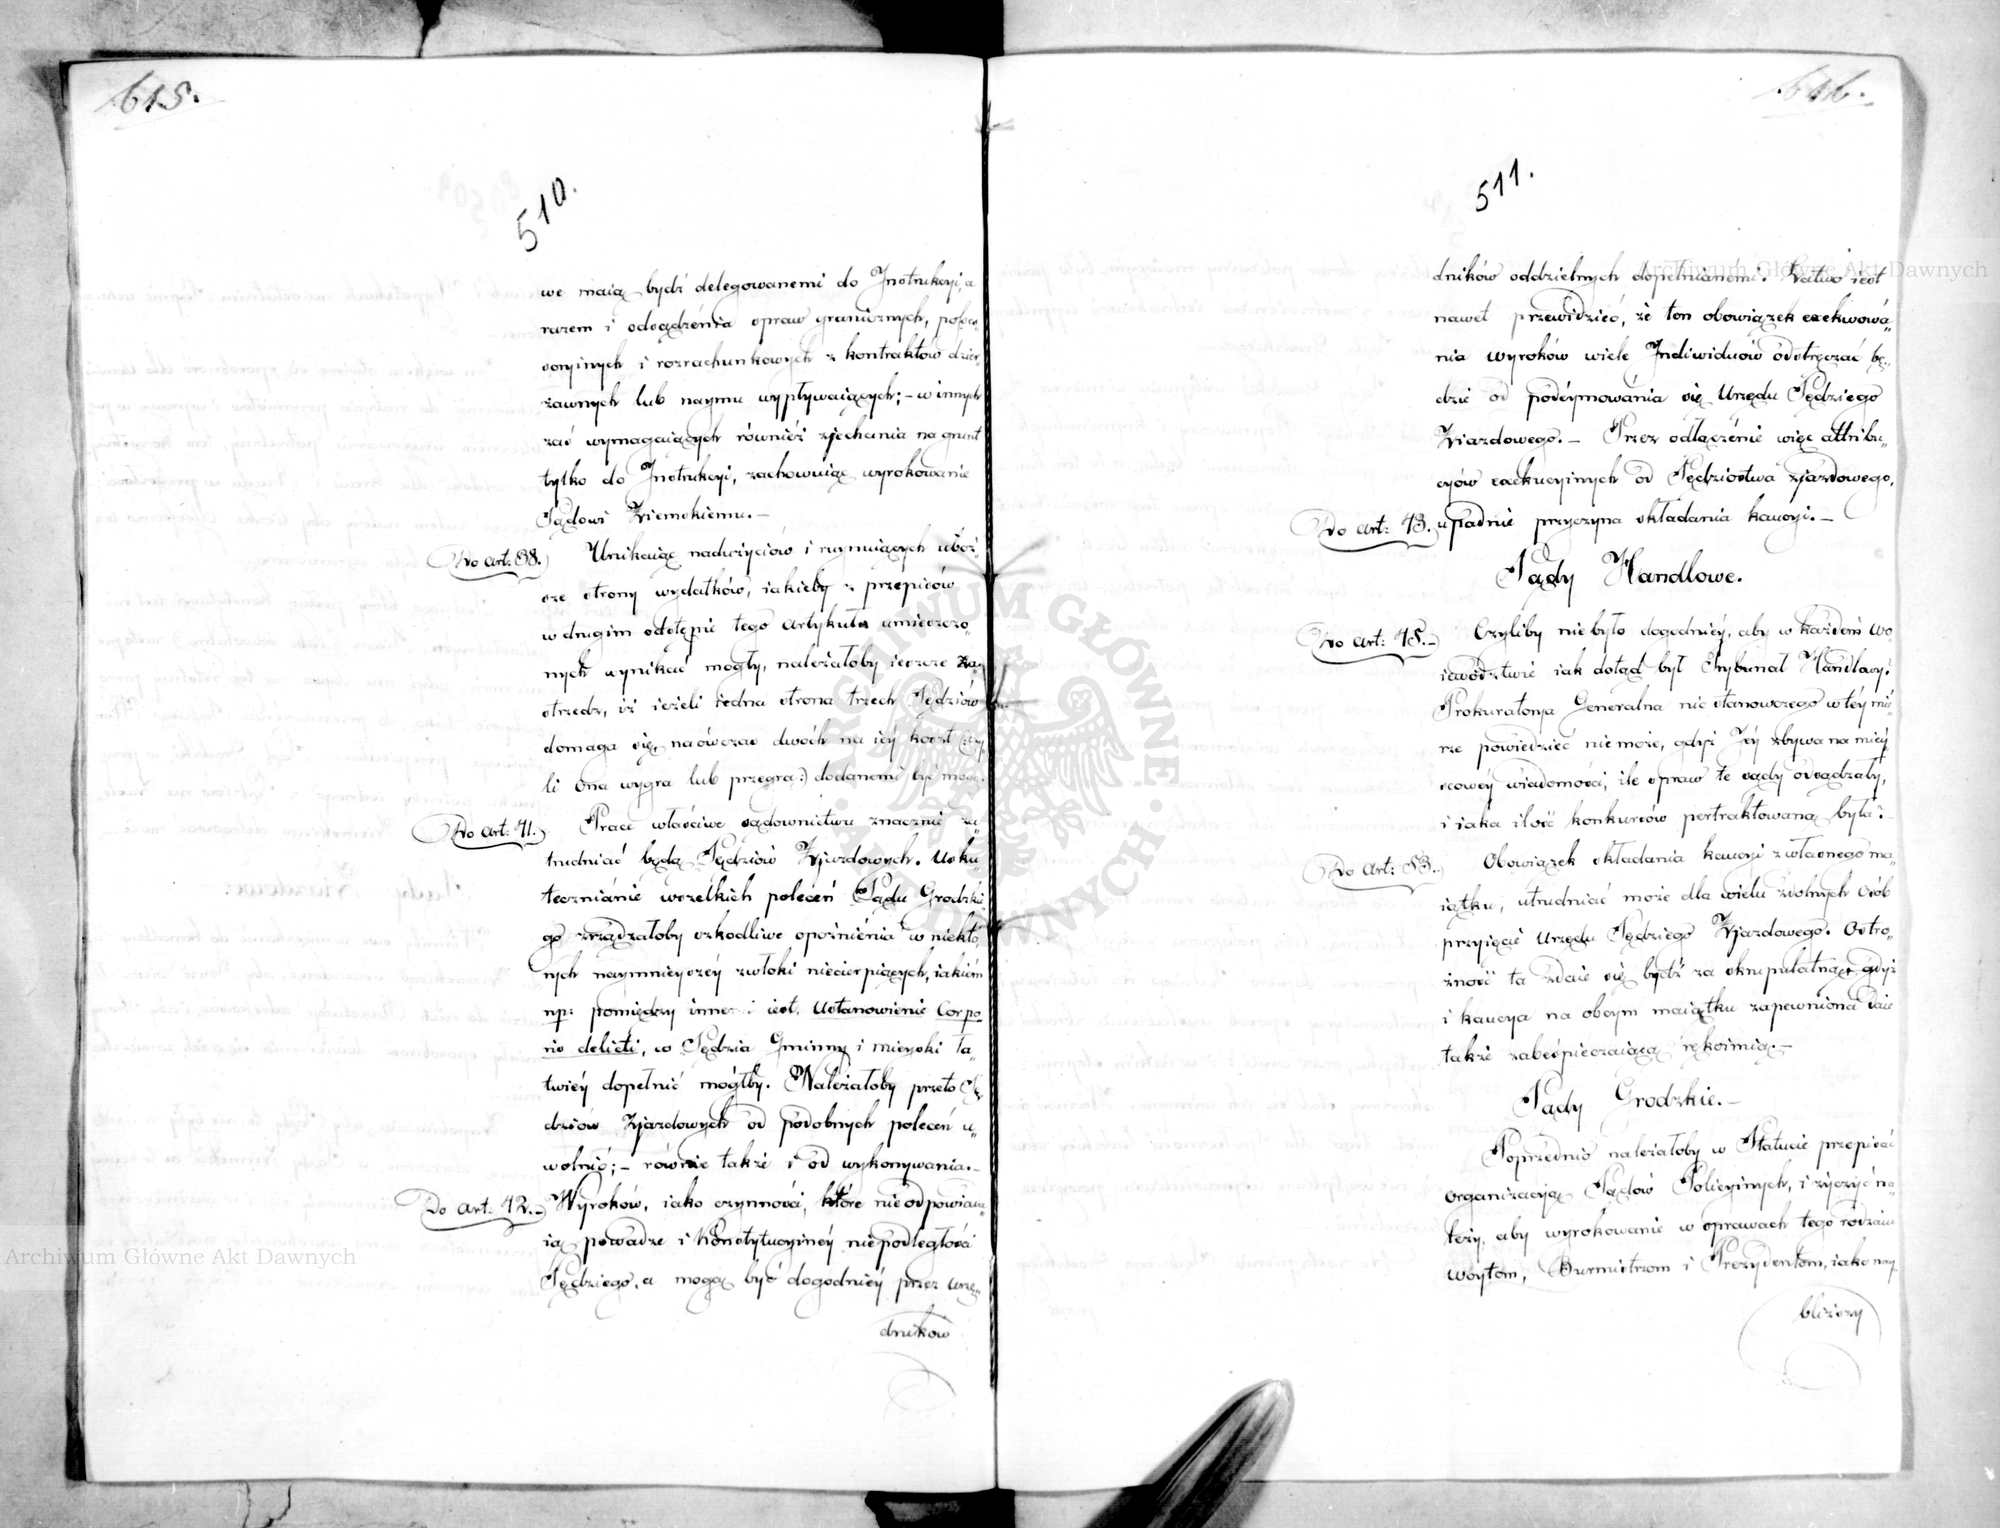 615.
510.
we maią bydź delegowanemi do Instrukcyi, a
razem i odsądzenia spraw granicznych, posses-
soryinych i rozrachunkowych z kontraktów dzier
żawnych lub naymu wypływaiących; – w innych
zaś wymagaiących również zjechania na grunt
tylko do Instrukcyi, zachowuiąc wyrokowanie
Sądowi Ziemskiemu. –
Do Art: 38. Unikaiąc nadużyciów i ruynuiących uboż„
sze strony wydatków, iakieby z przepisów
w drugim odstępie tego artykułu umieszczo„
nych wynikać mogły, należałoby ieszcze za„
strzedz, iż ieżeli iedna strona trzech Sędziów
domaga się, naówczas dwóch na iéy koszt (: czy„
li ona wygra lub przegra :) dodanemi być mogą.
Do Art: 41. Prace właściwe sądownictwu znacznie za„
trudniać będą Sędziów Zjazdowych. Usku
tecznianie wszelkich poleceń Sądu Grodzkie„
go zrządzałoby szkodliwe opoźnienia w niektó„
rych naymnieyszéy zwłoki niecierpiących, iakiém
np: pomiędzy innemi iest, Ustanowienie Corpo„
ris delicti, co Sędzia Gminny i mieyski ła„
twiéy dopełnić mógłby. Należałoby przeto Sę„
dziów Zjazdowych od podobnych poleceń u„
wolnić; – równie także i od wykonywania. –
Do Art: 42. – Wyroków, iako czynności, które nie odpowiada„
ią powadze i Konstytucyinéy niepodległości
Sędziego, a mogą być dogodniéy przez urzę„
dników
616.
511.
dników oddzielnych dopełnianemi. Łatwo iest
nawet przewidzieć, że ten obowiązek exekwowa„
nia wyroków wiele Indiwiduów odstręczać bę„
dzie od podéymowania się Urzędu Sędziego
Zjazdowego. – Przez odłączenie więc attribu„
cyów exekucyinych od Sędziostwa zjazdowego,
Do Art: 43. upadnie przyczyna składania kaucyi. –
Sądy Handlowe.
Do Art: 45. – Czyliby nie było dogodniéy, aby w każdém Wo„
iewództwie iak dotąd był Trybunał Handlowy?
Prokuratorya Generalna nic stanowczego w téy mie„
rze powiedzieć nie może, gdyż Jéy zbywa na mieys„
cowéy wiadomości, ile spraw te sądy osądzały,
i iaka ilość konkursów pertraktowaną była? –
Do Art: 53. Obowiązek składania kaucyi z własnego ma„
iątku, utrudniać może dla wielu zdolnych Osób
przyięcie Urzędu Sędziego Zjazdowego. Ostro„
żność ta zdaie się bydź za skrupulatną, gdyż
i kaucya na obcym maiątku zapewniona daie
także zabespieczaiącą rękoimię. –
Sądy Grodzkie. –
Poprzednio należałoby w Statucie przepisać
Organizacyą Sądów Policyinych, i życzyć na„
leży, aby wyrokowanie w sprawach tego rodzaiu
Woytom, Burmistrzom i Prezydentom, iako nay„
bliższy